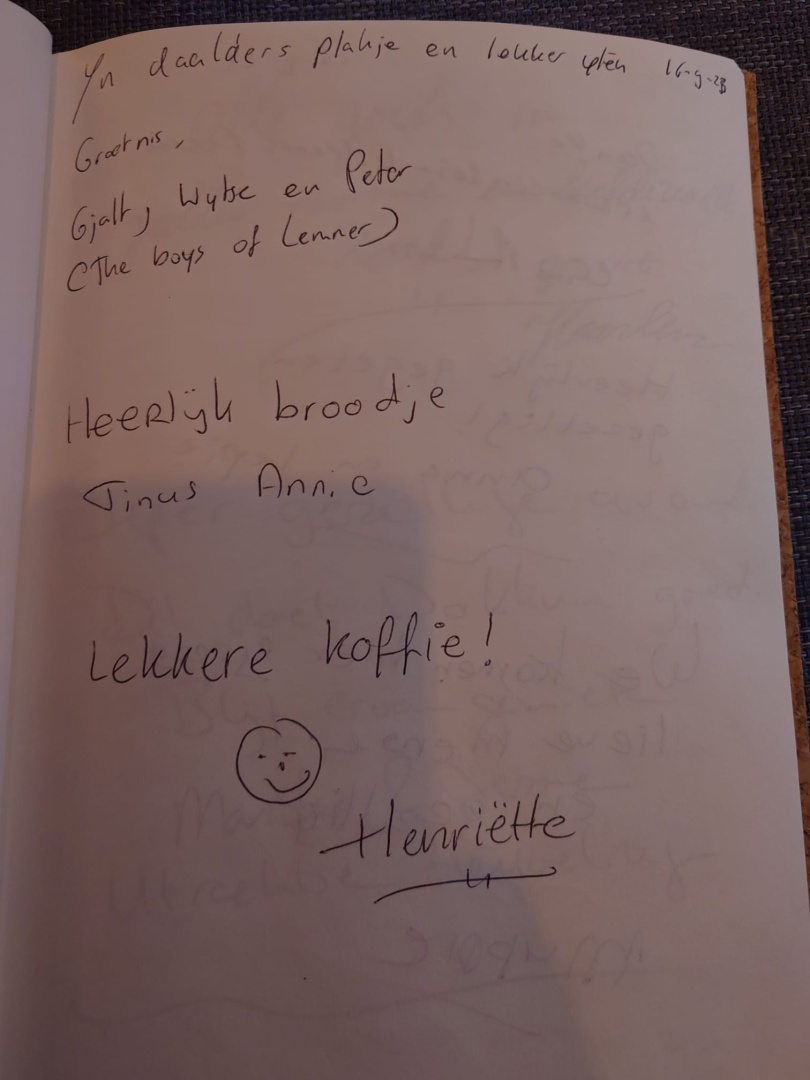 Yn daalders plakje en lekker yten 16-9-23
Groetnis,
Gjalt, Wybe en Peter
(The boys of Lemmer)
Heerlijk broodje
Tinus Annie
Lekkere koffie!
Henriëtte